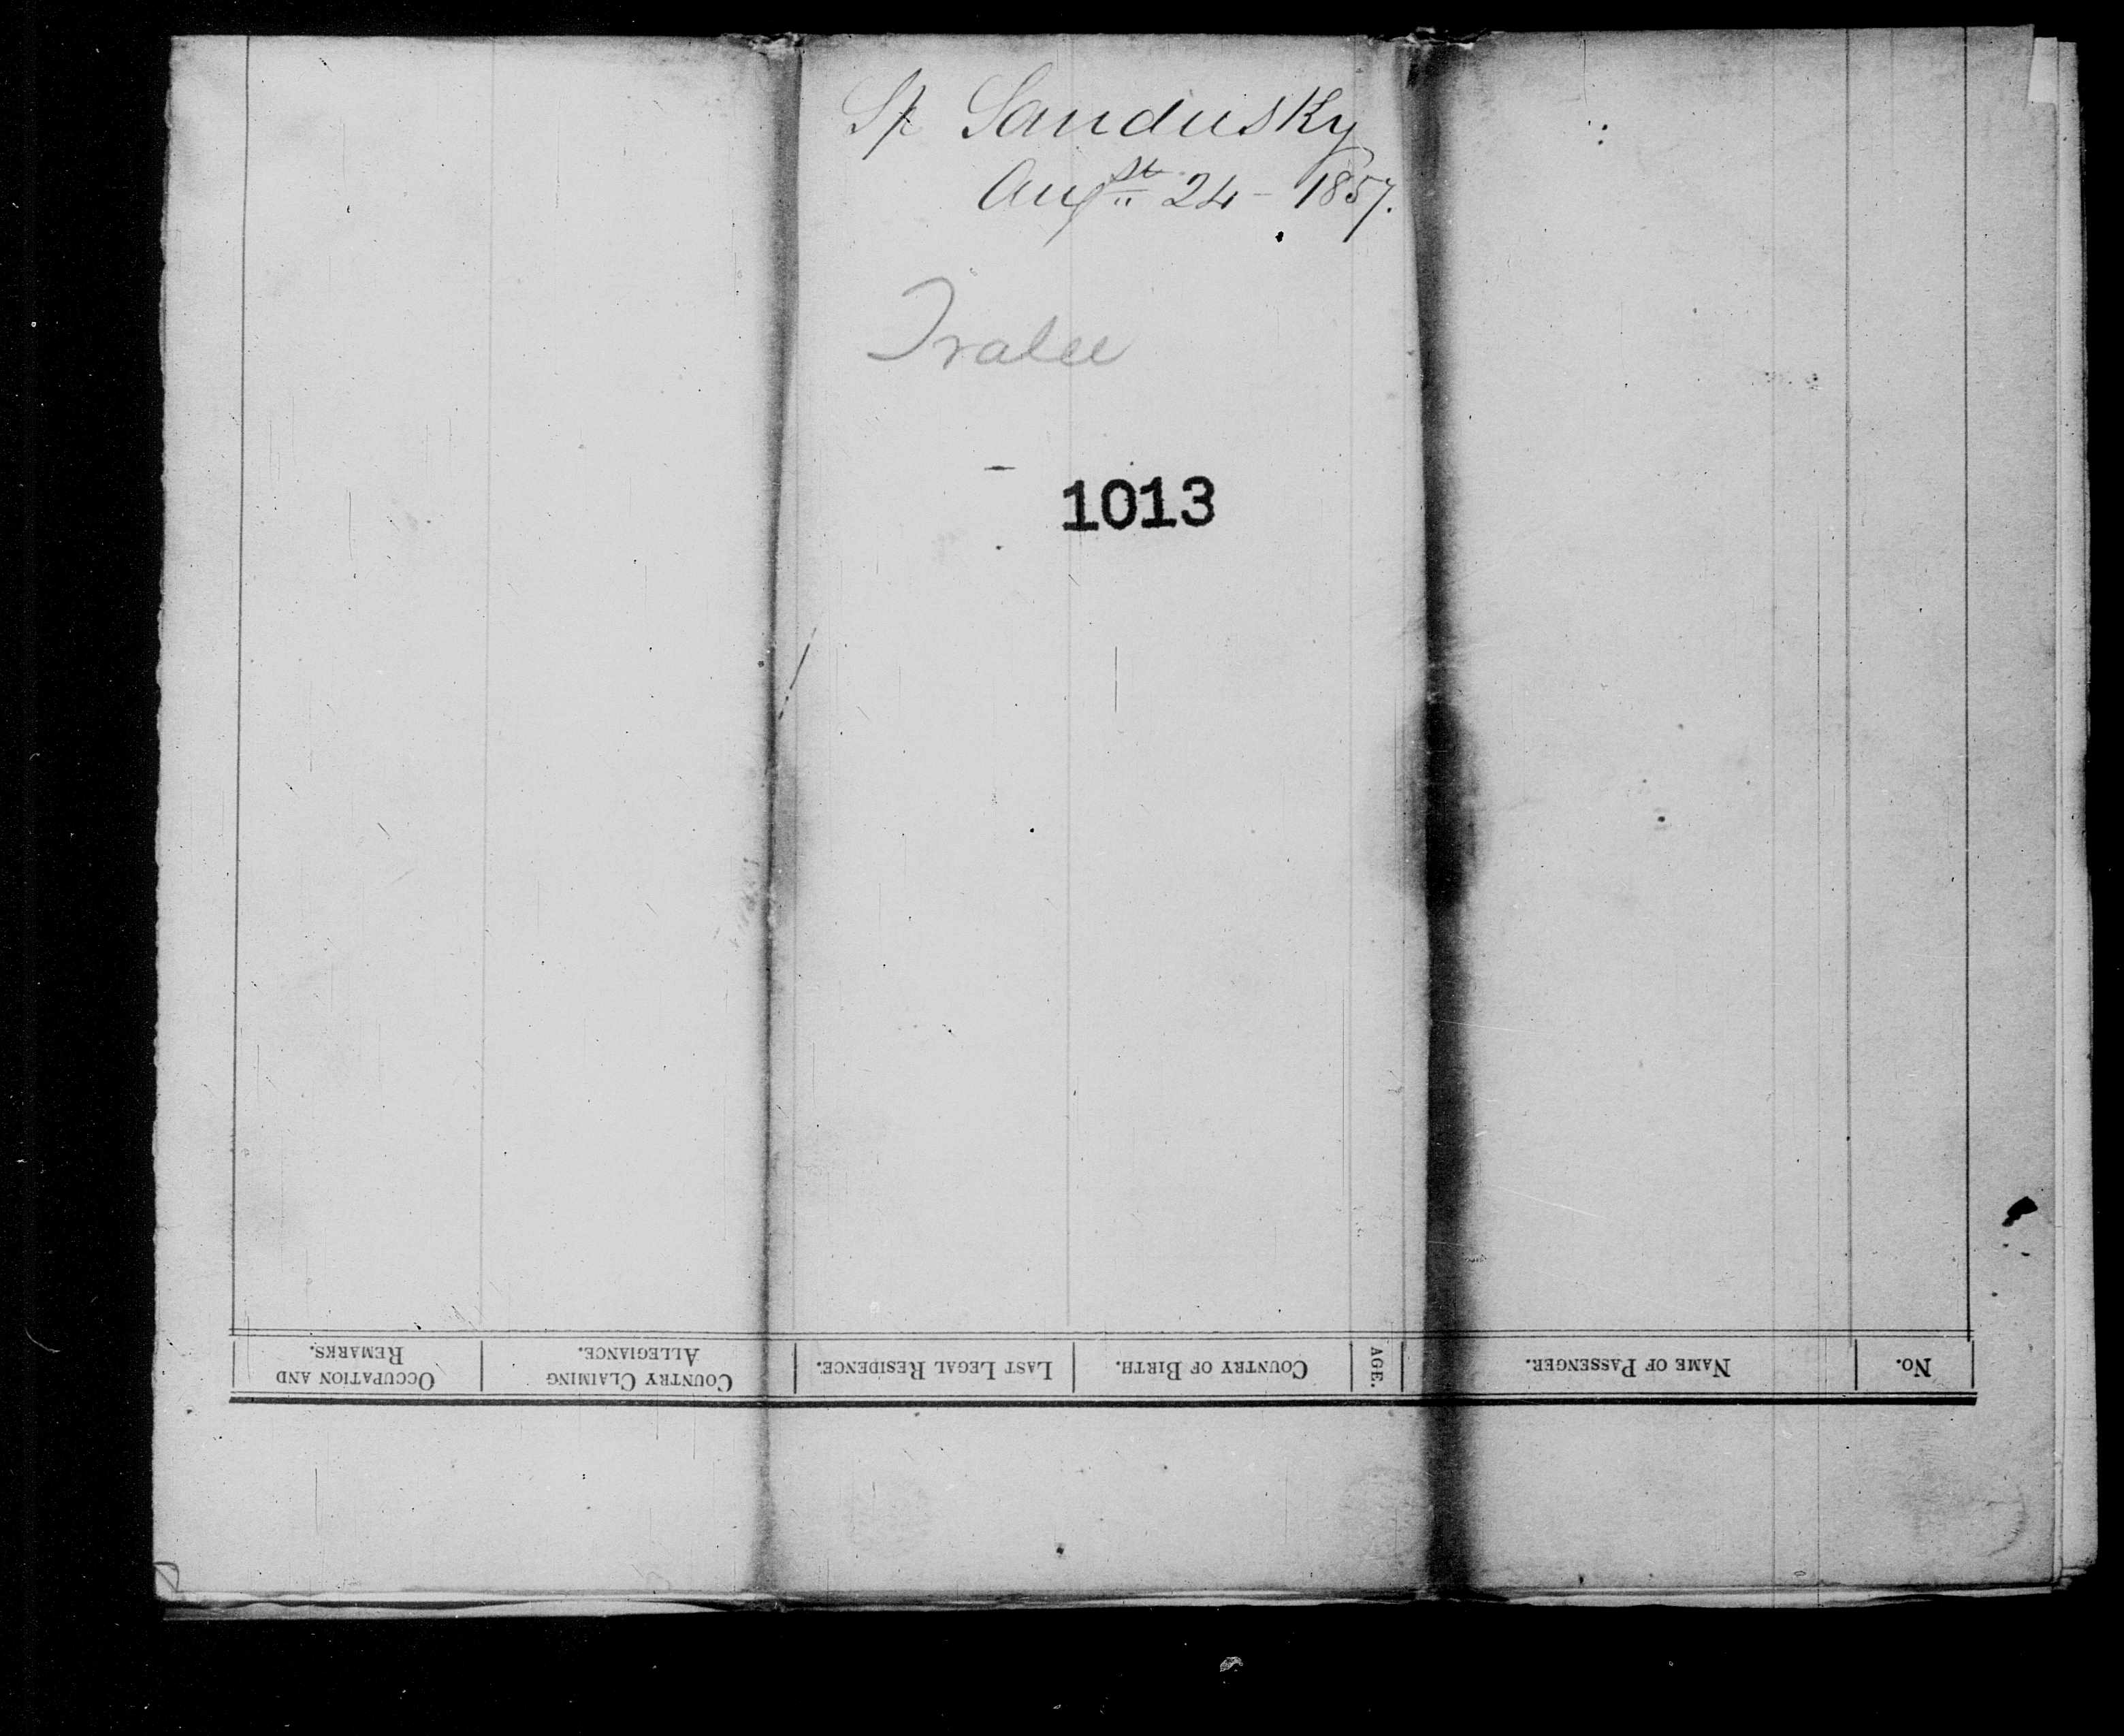 Sp Sandusky
Augst 24 - 1857.
Tralee
1013
No.
NAME OF PASSENGER.
AGE.
COUNTRY OF BIRTH.
LAST LEGAL RESIDENCE.
COUNTRY CLAIMING
ALLEGIANCE.
OCCUPATION AND
REMARKS.